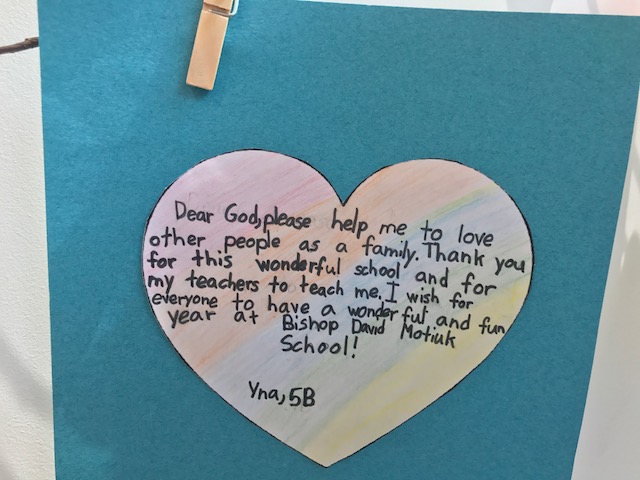 Dear God,please help me to love
other people as a family. Thank you
for this wonderful school and for
my teachers to teach me. I wish for
everyone to have a wonderful and fun
year at Bishop David Motiuk
School!
Yna, 5B